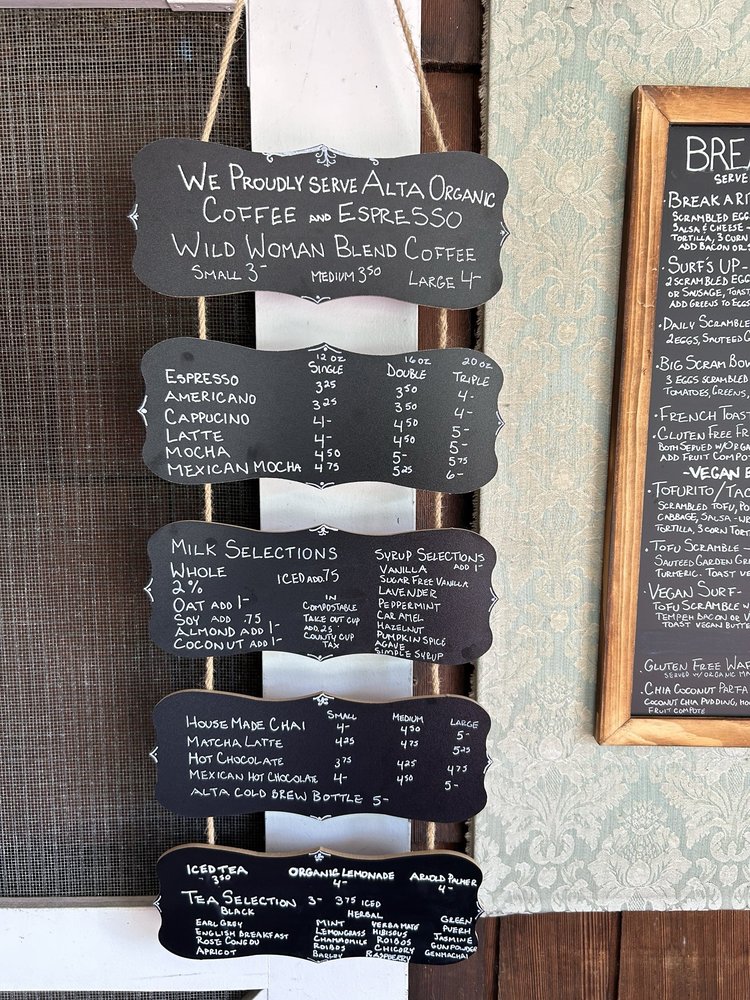 WE PROUDLY SERVE ALTA ORGANIC
COFFEE AND ESPRESSO
WILD WOMAN BLEND COFFEE
SMALL 3- MEDIUM 3 50 LARGE 4-
12 OZ 16 OZ 20 OZ
SINGLE DOUBLE TRIPLE
ESPRESSO 3 25 3 50 4-
AMERICANO 3 25 3 50 4-
CAPPUCINO 4- 4 50 5-
LATTE 4- 4 50 5-
MOCHA 4 50 5- 5 75
MEXICAN MOCHA 4 75 5 25 6-
MILK SELECTIONS
WHOLE
2%
OAT ADD 1-
SOY ADD .75
ALMOND ADD 1-
COCONUT ADD 1-
ICED ADD .75
IN
COMPOSTABLE
TAKE OUT CUP
ADD .25
COUNTY CUP
TAX
SYRUP SELECTIONS
ADD 1-
VANILLA
SUGAR FREE VANILLA
LAVENDER
PEPPERMINT
CARAMEL
HAZELNUT
PUMPKIN SPICE
AGAVE
SIMPLE SYRUP
SMALL MEDIUM LARGE
HOUSE MADE CHAI 4- 4 50 5-
MATCHA LATTE 4 25 4 75 5 25
HOT CHOCOLATE 3 75 4 25 4 75
MEXICAN HOT CHOCOLATE 4- 4 50 5-
ALTA COLD BREW BOTTLE 5-
ICED TEA ORGANIC LEMONADE ARNOLD PALMER
3 50 4- 4-
TEA SELECTION 3- 3 75 ICED
BLACK
EARL GREY
ENGLISH BREAKFAST
ROSE CONGOU
APRICOT
HERBAL
MINT YERBA MATE
LEMONGRASS HIBISCUS
CHAMOMILE ROIBOS
ROIBOS CHICORY
BARLEY RASPBERRY
GREEN
PUERH
JASMINE
GUNPOWDER
GENMACHAI
BREA
SERVE
· BREAK A RI
SCRAMBLED EGG
SALSA & CHEESE -
TORTILLA, 3 CORN
ADD BACON OR S
· SURF'S UP -
2 SCRAMBLED EGG
OR SAUSAGE, TOAST
ADD GREENS TO EGGS
· DAILY SCRAMBLE
2 EGGS, SAUTEED G
· BIG SCRAM BOW
3 EGGS SCRAMBLED
TOMATOES, GREENS,
· FRENCH TOAST
· GLUTEN FREE FR
BOTH SERVED W/ORG
ADD FRUIT COMPO
- VEGAN B
· TOFURITO/TAC
SCRAMBLED TOFU, PO
CABBAGE, SALSA - WR
TORTILLA, 3 CORN TORT
· TOFU SCRAMBLE -
SAUTEED GARDEN GRE
TURMERIC. TOAST VE
· VEGAN SURF -
TOFU SCRAMBLE W
TEMPEH BACON OR V
TOAST VEGAN BUTTE
GLUTEN FREE WAF
SERVED W/ ORGANIC MA
· CHIA COCONUT PARFA
COCONUT CHIA PUDDING, HO
FRUIT COMPOTE